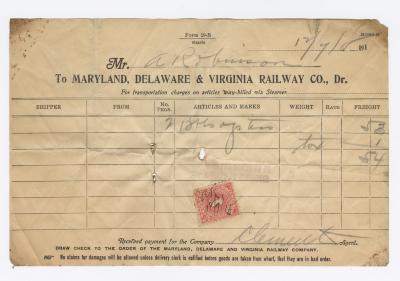 Form 19-S
12/7/8 191
Mr. A Robinson
To MARYLAND, DELAWARE & VIRGINIA RAILWAY CO., Dr.
For transportation charges on articles way-billed via Steamer
SHIPPER FROM No. PKGS. ARTICLES AND MARKS WEIGHT RATE FREIGHT
2 Bbls oysters 53
tax 1
54
Received payment for the Company Agent.
DRAW CHECK TO THE ORDER OF THE MARYLAND, DELAWARE AND VIRGINIA RAILWAY COMPANY.
No claims for damages will be allowed unless delivery clerk is notified before goods are taken from wharf, that they are in bad order.